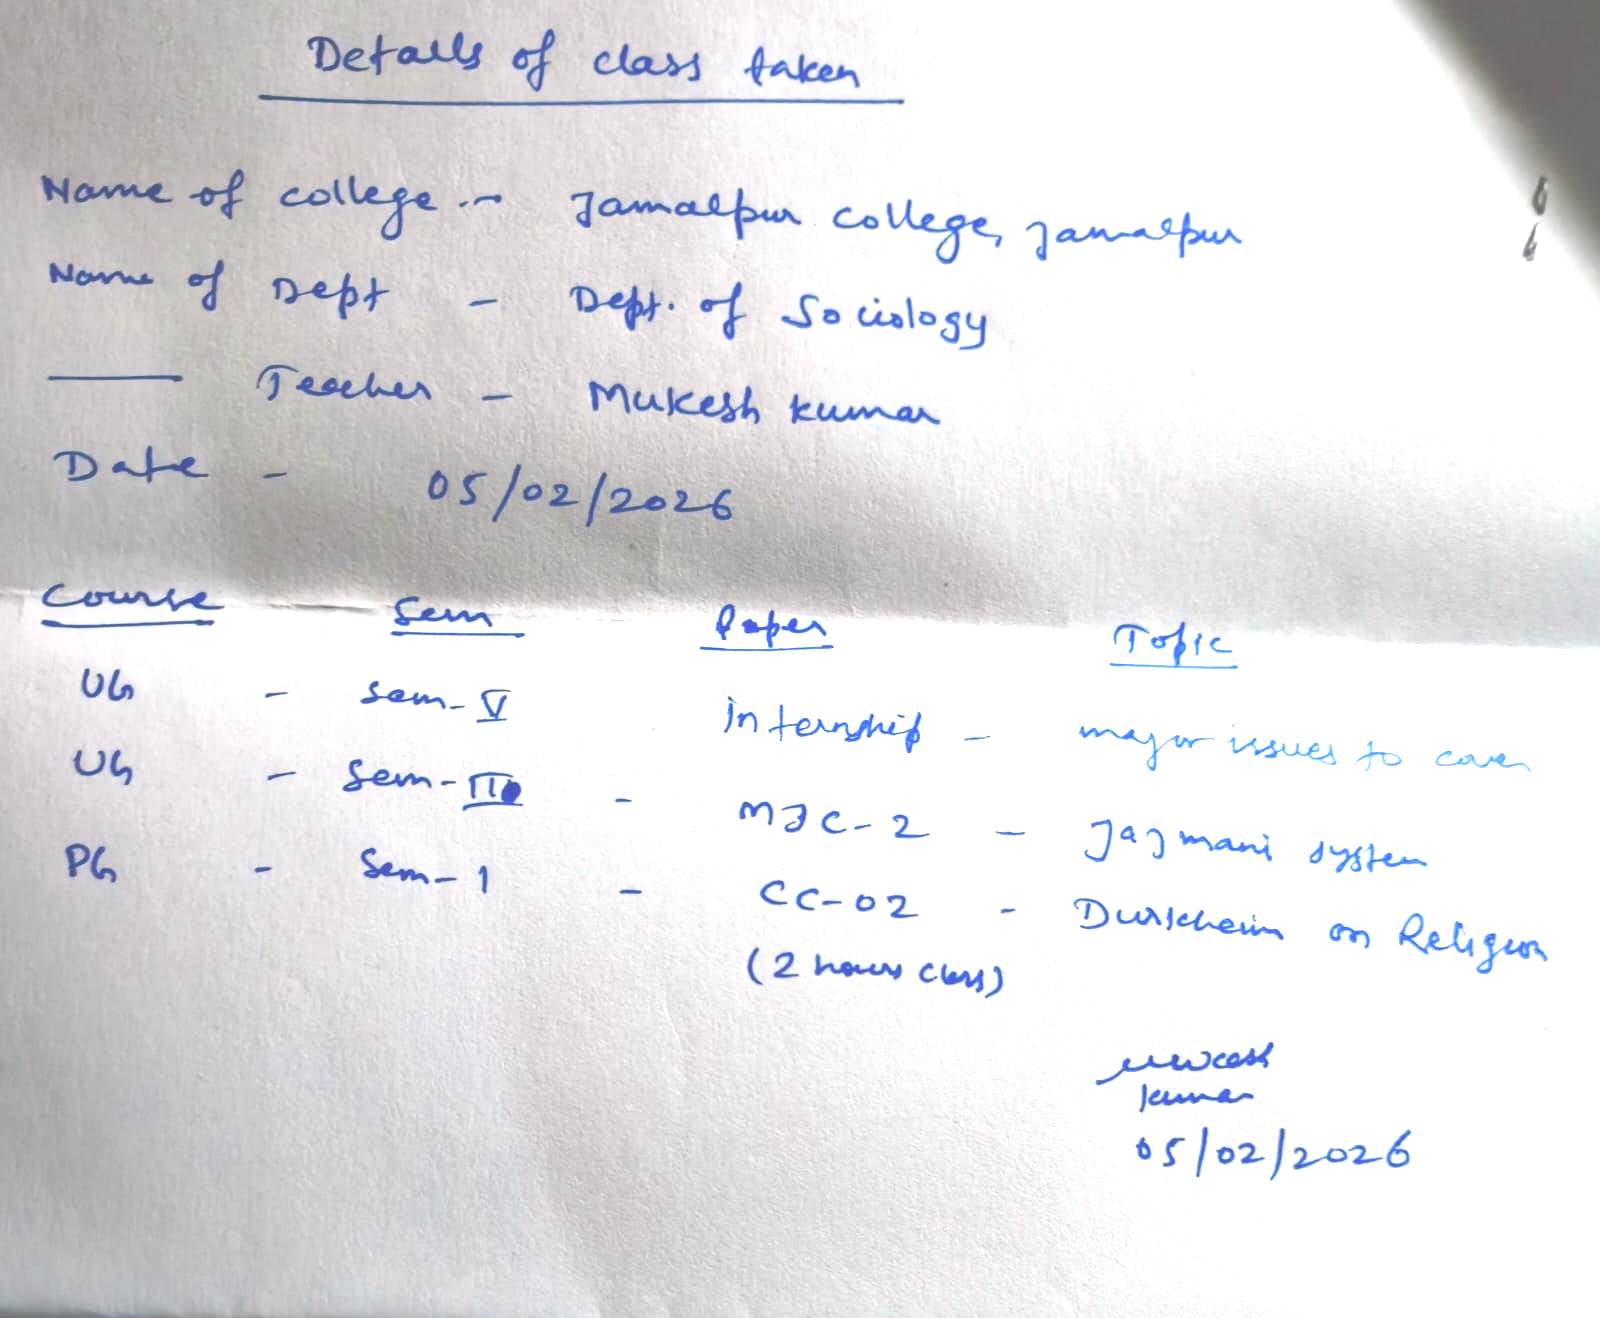 Details of class taken
Name of college :- Jamalpur college, Jamalpur
Name of Dept - Dept. of Sociology
—— Teacher - Mukesh kumar
Date - 05/02/2026
Course Sem Paper Topic
UG - Sem-V internship - major issues to cover
UG - Sem-II - MJC-2 - Jajmani system
PG - Sem-1 - CC-02 - Durkheim on Religion
(2 hours class)
Mukesh
kumar
05/02/2026